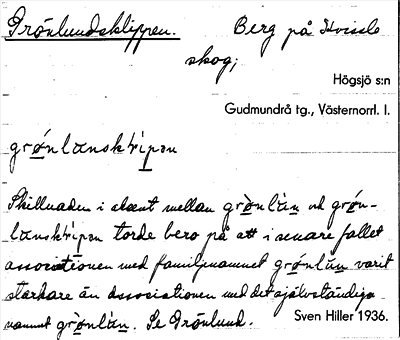 Grönlundsklippen. Berg på Hvissle
skog;
Högsjö s:n
Gudmundrå tg., Västernorrl. l.
grønlɑnsklìpən
Skillnaden i akcent mellan grø̀nlùn och grøn-
lɑnsklìpən torde bero på att i senare fallet
associationen med familjenamnet grønlùn varit
starkare än associationen med det självständiga
namnet grø̀nlùn. Se Grönlund. Sven Hiller 1936.